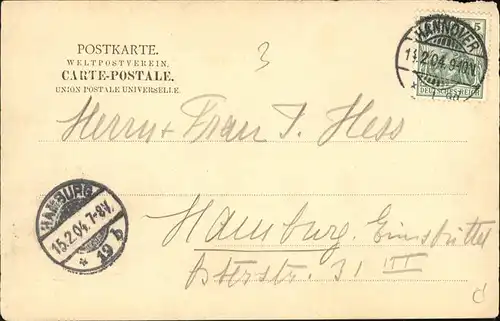 POSTKARTE.
WELTPOSTVEREIN.
CARTE-POSTALE.
UNION POSTALE UNIVERSELLE.
3
5
HANNOVER
14.2.04.9-10V.
DEUTSCHES REICH
Herrn + Frau T. Hess
HAMBURG
15.2.04.7-8V.
* 19 b
Hamburg. Eimsbüttel
Osterstr. 31 III